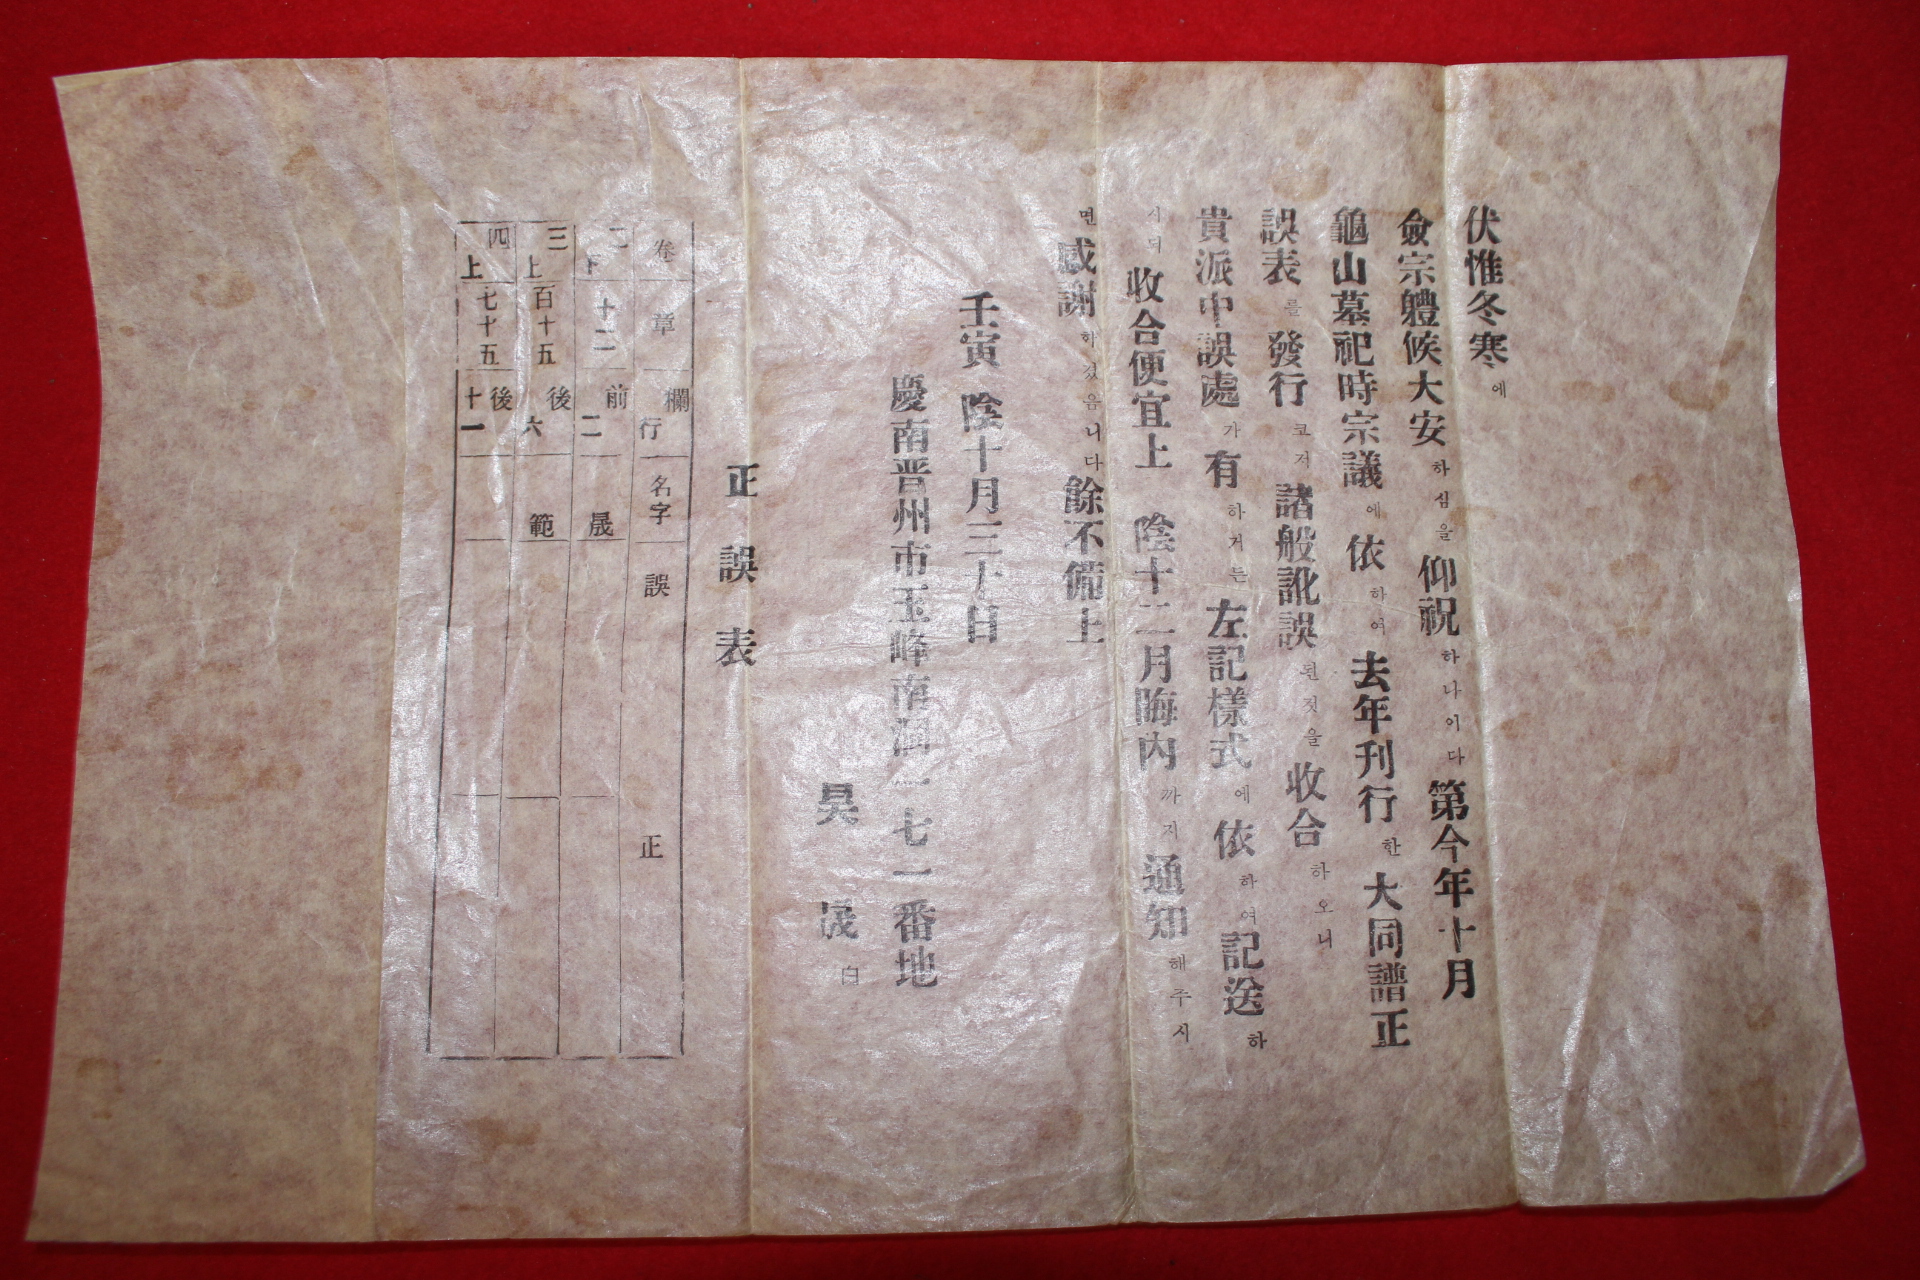 伏惟冬寒에
僉宗軆候大安하심을仰祝하나이다第今年十月
龜山墓祀時宗議에依하여去年刊行한大同譜正
誤表를發行코저諸般訛誤된것을收合하오니
貴派中誤處가有하거든左記樣式에依하여記送하
시되收合便宜上 陰十二月晦內까지通知해주시
면感謝하겠음니다餘不備上
壬寅 陰十月三十日
慶南晋州市玉峰南洞一七一番地
昊 晟 白
正誤表
卷 章 欄行 名字 誤 正
二下 十二 前二 晟
三上 百十五 後六 範
四上 七十五 後十一